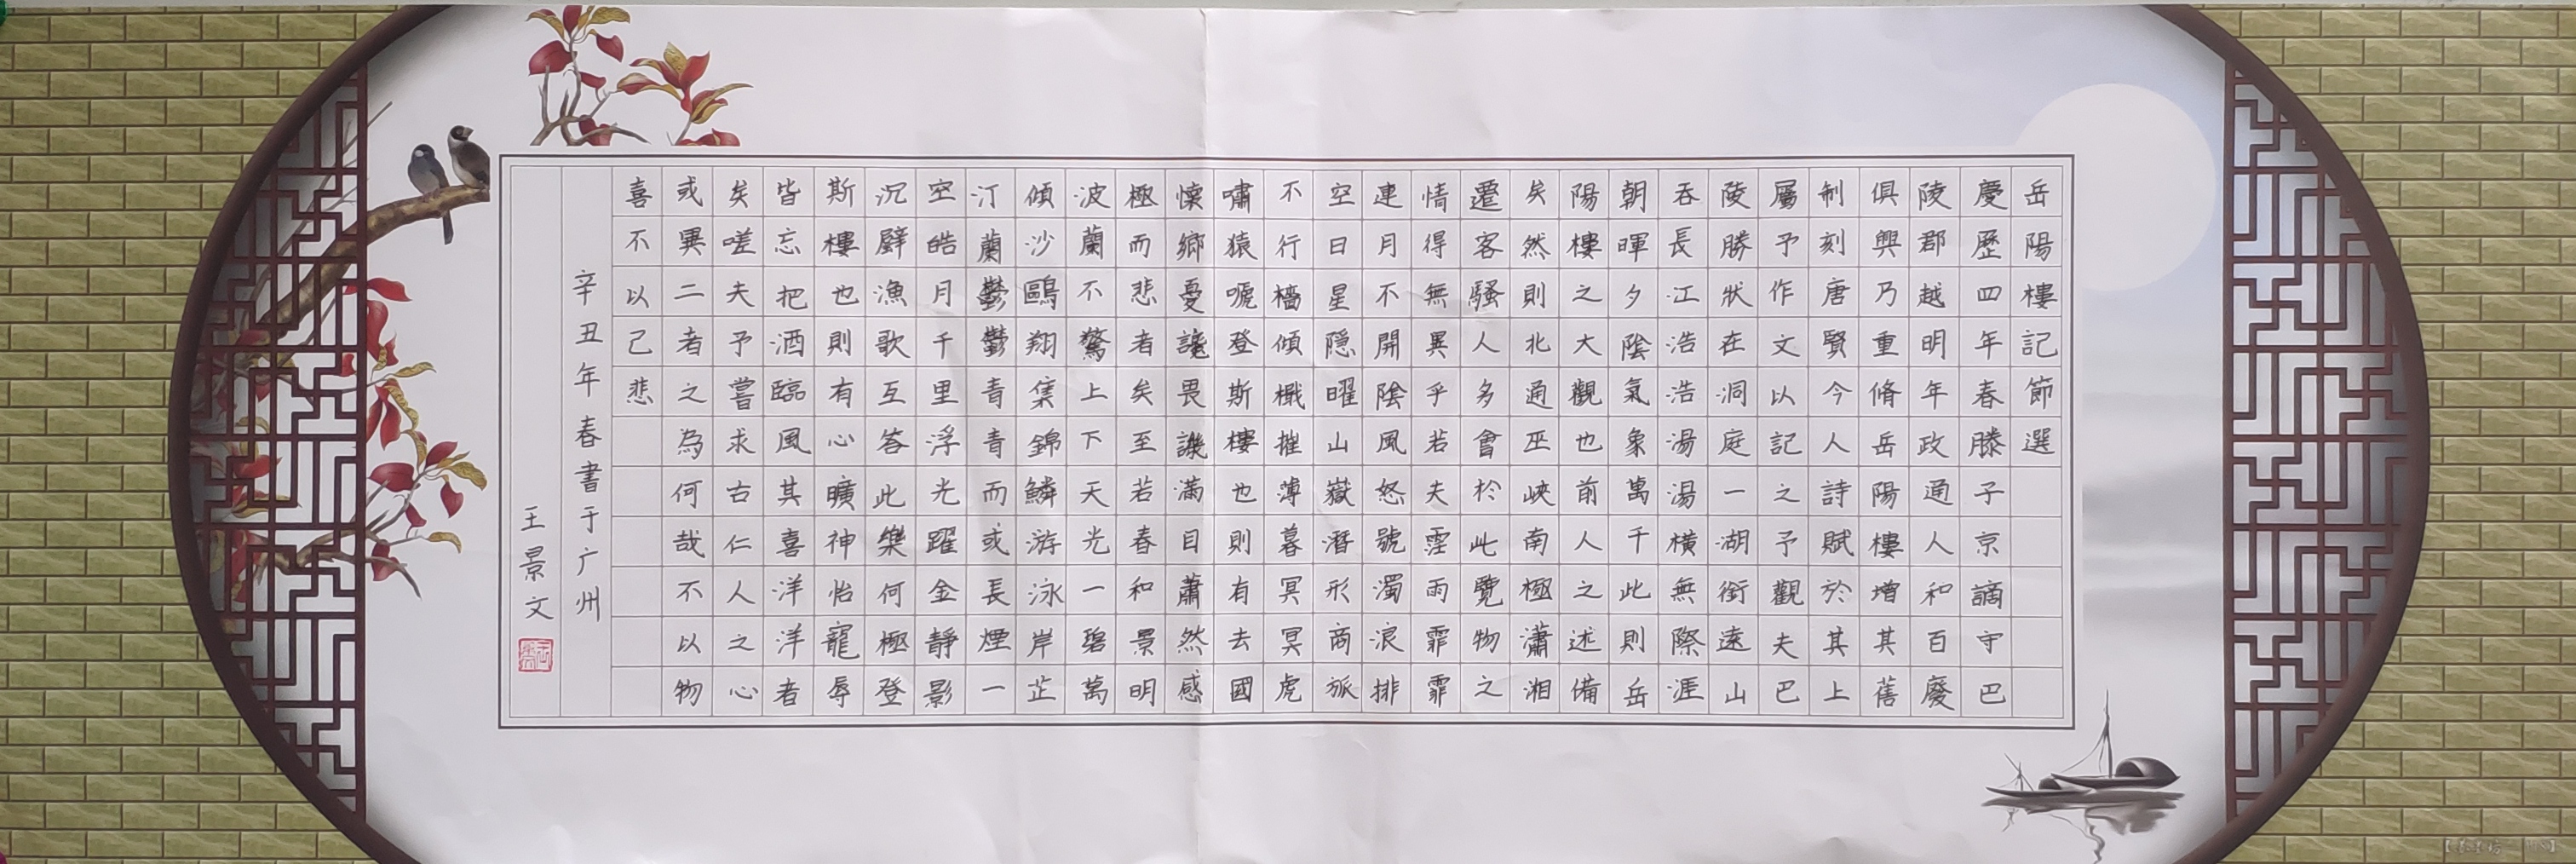 岳陽樓記節選
慶歷四年春滕子京謫守巴
陵郡越明年政通人和百廢
俱興乃重脩岳陽樓增其舊
制刻唐賢今人詩賦於其上
屬予作文以記之予觀夫巴
陵勝狀在洞庭一湖銜遠山
吞長江浩浩湯湯橫無際涯
朝暉夕陰氣象萬千此則岳
陽樓之大觀也前人之述備
矣然則北通巫峽南極瀟湘
遷客騷人多會於此覽物之
情得無異乎若夫霪雨霏霏
連月不開陰風怒號濁浪排
空日星隱曜山嶽潛形商旅
不行檣傾檝摧薄暮冥冥虎
嘯猿嗁登斯樓也則有去國
懷鄉憂讒畏譏滿目蕭然感
極而悲者矣至若春和景明
波蘭不驚上下天光一碧萬
傾沙鷗翔集錦鱗游泳岸芷
汀蘭鬱鬱青青而或長煙一
空皓月千里浮光躍金靜影
沉璧漁歌互答此樂何極登
斯樓也則有心曠神怡寵辱
皆忘把酒臨風其喜洋洋者
矣嗟夫予嘗求古仁人之心
或異二者之為何哉不以物
喜不以己悲
辛丑年春書于广州
王景文